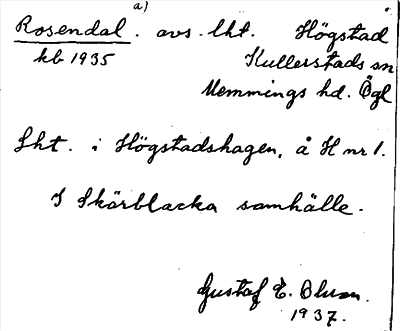 a)
Rosendal. avs. lht. Högstad
kb 1935 Kullerstads sn
Memmings hd. Ögl
Lht. i Högstadshagen, å H nr 1.
I Skärblacka samhälle.
Gustaf E. Olsson.
1937.